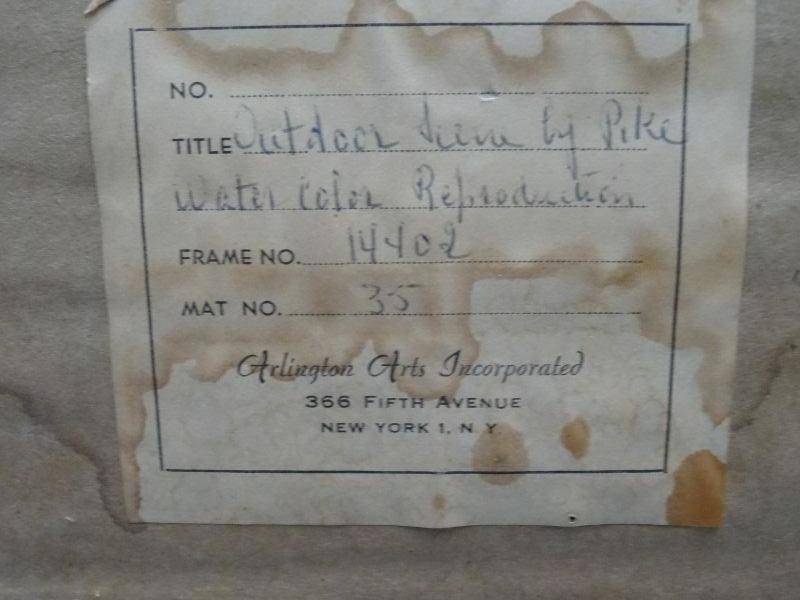 NO.
TITLE Outdoor Scene by Pike
Water Color Reproduction
FRAME NO. 14402
MAT NO. 35
Arlington Arts Incorporated
366 FIFTH AVENUE
NEW YORK 1, N Y.